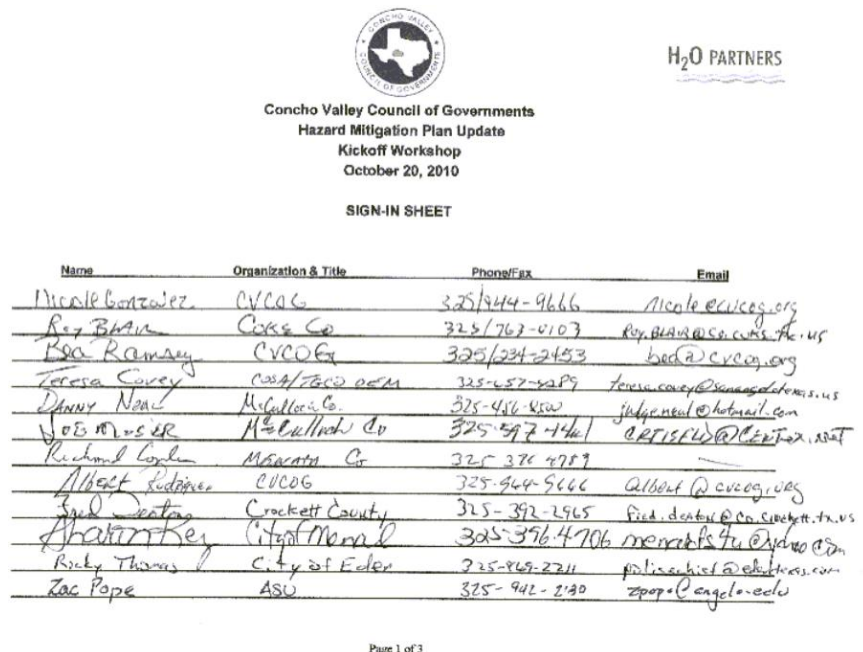 CONCHO VALLEY
COUNCIL OF GOVERNMENTS
H2O PARTNERS
Concho Valley Council of Governments
Hazard Mitigation Plan Update
Kickoff Workshop
October 20, 2010
SIGN-IN SHEET
Name Organization & Title Phone/Fax Email
Nicole Gonzalez CVCOG 325/944-9666 nicole@cvcog.org
Roy BLAIR COKE Co Roy.BLAIR@co.coke.tx.us
Bea Ramsey CVCOG 325/234-2453 bea@cvcog.org
Teresa Covey COSA/TGCO OEM teresa.covey@sanangelotexas.us
DANNY Neal McCulloch Co. judgeneal@hotmail.com
JOE MOSIER McCulloch Co
Richard MENARD Co
Albert Rodriguez CVCOG 325-944-9666 albert@cvcog.org
Fred Deaton Crockett County 325-392-2965 fred.deaton@co.crockett.tx.us
Sharon Key City of Menard 325-396-4706
Ricky Thomas City of Eden 325-869-2211 policechief@edentexas.com
Zac Pope ASU
Page 1 of 3